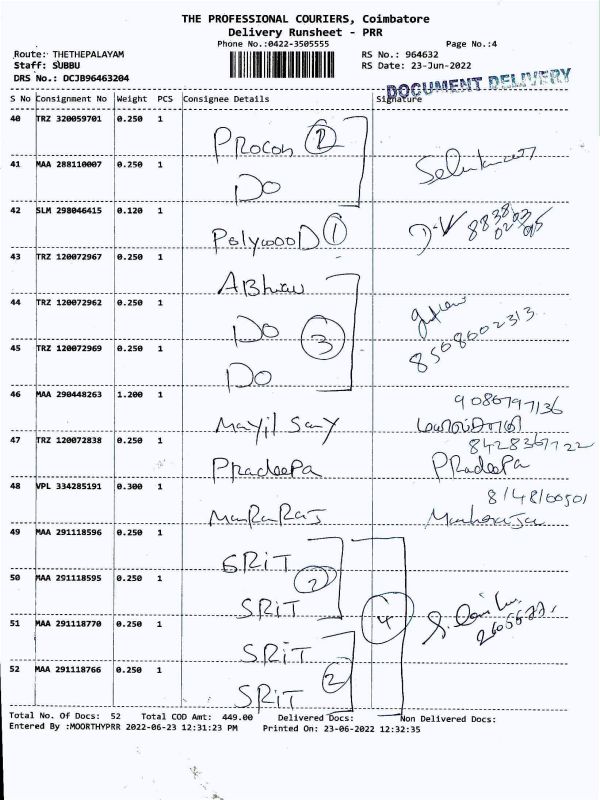 THE PROFESSIONAL COURIERS, Coimbatore
Delivery Runsheet - PRR
Phone No.:0422-3505555 Page No.:4
Route: THETHEPALAYAM RS No.: 964632
Staff: SUBBU RS Date: 23-Jun-2022
DRS No.: DCJB96463204
DOCUMENT DELIVERY
S No Consignment No Weight PCS Consignee Details Signature
40 TRZ 320059701 0.250 1 Procon 2
41 MAA 288110007 0.250 1 DO
42 SLM 298046415 0.120 1 PolywooD 1
43 TRZ 120072967 0.250 1
44 TRZ 120072962 0.250 1 DO 3
8508602313
45 TRZ 120072969 0.250 1 DO
46 MAA 290448263 1.200 1 Mayil Samy 9086797136
47 TRZ 120072838 0.250 1 Pradeepa PRadeePa
48 VPL 334285191 0.300 1
49 MAA 291118596 0.250 1 SRiT
50 MAA 291118595 0.250 1 SRiT 2
51 MAA 291118770 0.250 1 SRiT 4
52 MAA 291118766 0.250 1 SRiT 2
Total No. Of Docs: 52 Total COD Amt: 449.00 Delivered Docs: Non Delivered Docs:
Entered By :MOORTHYPRR 2022-06-23 12:31:23 PM Printed On: 23-06-2022 12:32:35